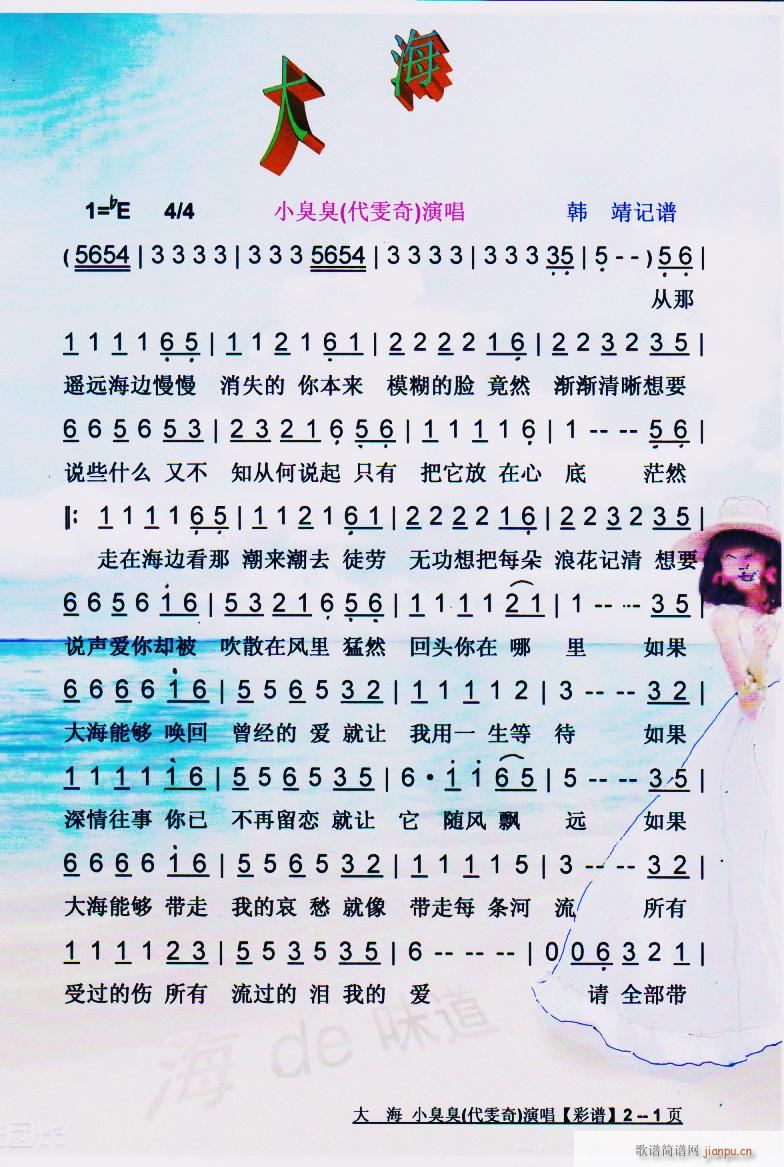 大 海
1=♭E 4/4 小臭臭(代雯奇)演唱 韩 靖记谱
( 5654 | 3 3 3 3 | 3 3 3 5654 | 3 3 3 3 | 3 3 3 35 | 5 - - ) 5 6 |
从那
1 1 1 1 6 5 | 1 1 2 1 6 1 | 2 2 2 2 1 6 | 2 2 3 2 3 5 |
遥远海边慢慢 消失的 你本来 模糊的脸 竟然 渐渐清晰想要
6 6 5 6 5 3 | 2 3 2 1 6 5 6 | 1 1 1 1 6 | 1 -- - 5 6 |
说些什么 又不 知从何说起 只有 把它放 在心 底 茫然
‖: 1 1 1 1 6 5 | 1 1 2 1 6 1 | 2 2 2 2 1 6 | 2 2 3 2 3 5 |
走在海边看那 潮来潮去 徒劳 无功想把每朵 浪花记清 想要
6 6 5 6 1 6 | 5 3 2 1 6 5 6 | 1 1 1 2 1 | 1 -- - 3 5 |
说声爱你却被 吹散在风里 猛然 回头你在 哪 里 如果
6 6 6 6 1 6 | 5 5 6 5 3 2 | 1 1 1 1 2 | 3 -- - 3 2 |
大海能够 唤回 曾经的 爱 就让 我用一 生等 待 如果
1 1 1 1 1 6 | 5 5 6 5 3 5 | 6 · 1 1 6 5 | 5 -- - 3 5 |
深情往事 你已 不再留恋 就让 它 随风 飘 远 如果
6 6 6 6 1 6 | 5 5 6 5 3 2 | 1 1 1 1 5 | 3 -- - 3 2 |
大海能够 带走 我的哀 愁 就像 带走每 条河 流 所有
1 1 1 1 2 3 | 5 5 3 5 3 5 | 6 -- -- | 0 0 6 3 2 1 |
受过的伤 所有 流过的 泪 我的 爱 请 全部带
海 de 味道
大 海 小臭臭(代雯奇)演唱【彩谱】2--1页
歌谱简谱网 jianpu.cn